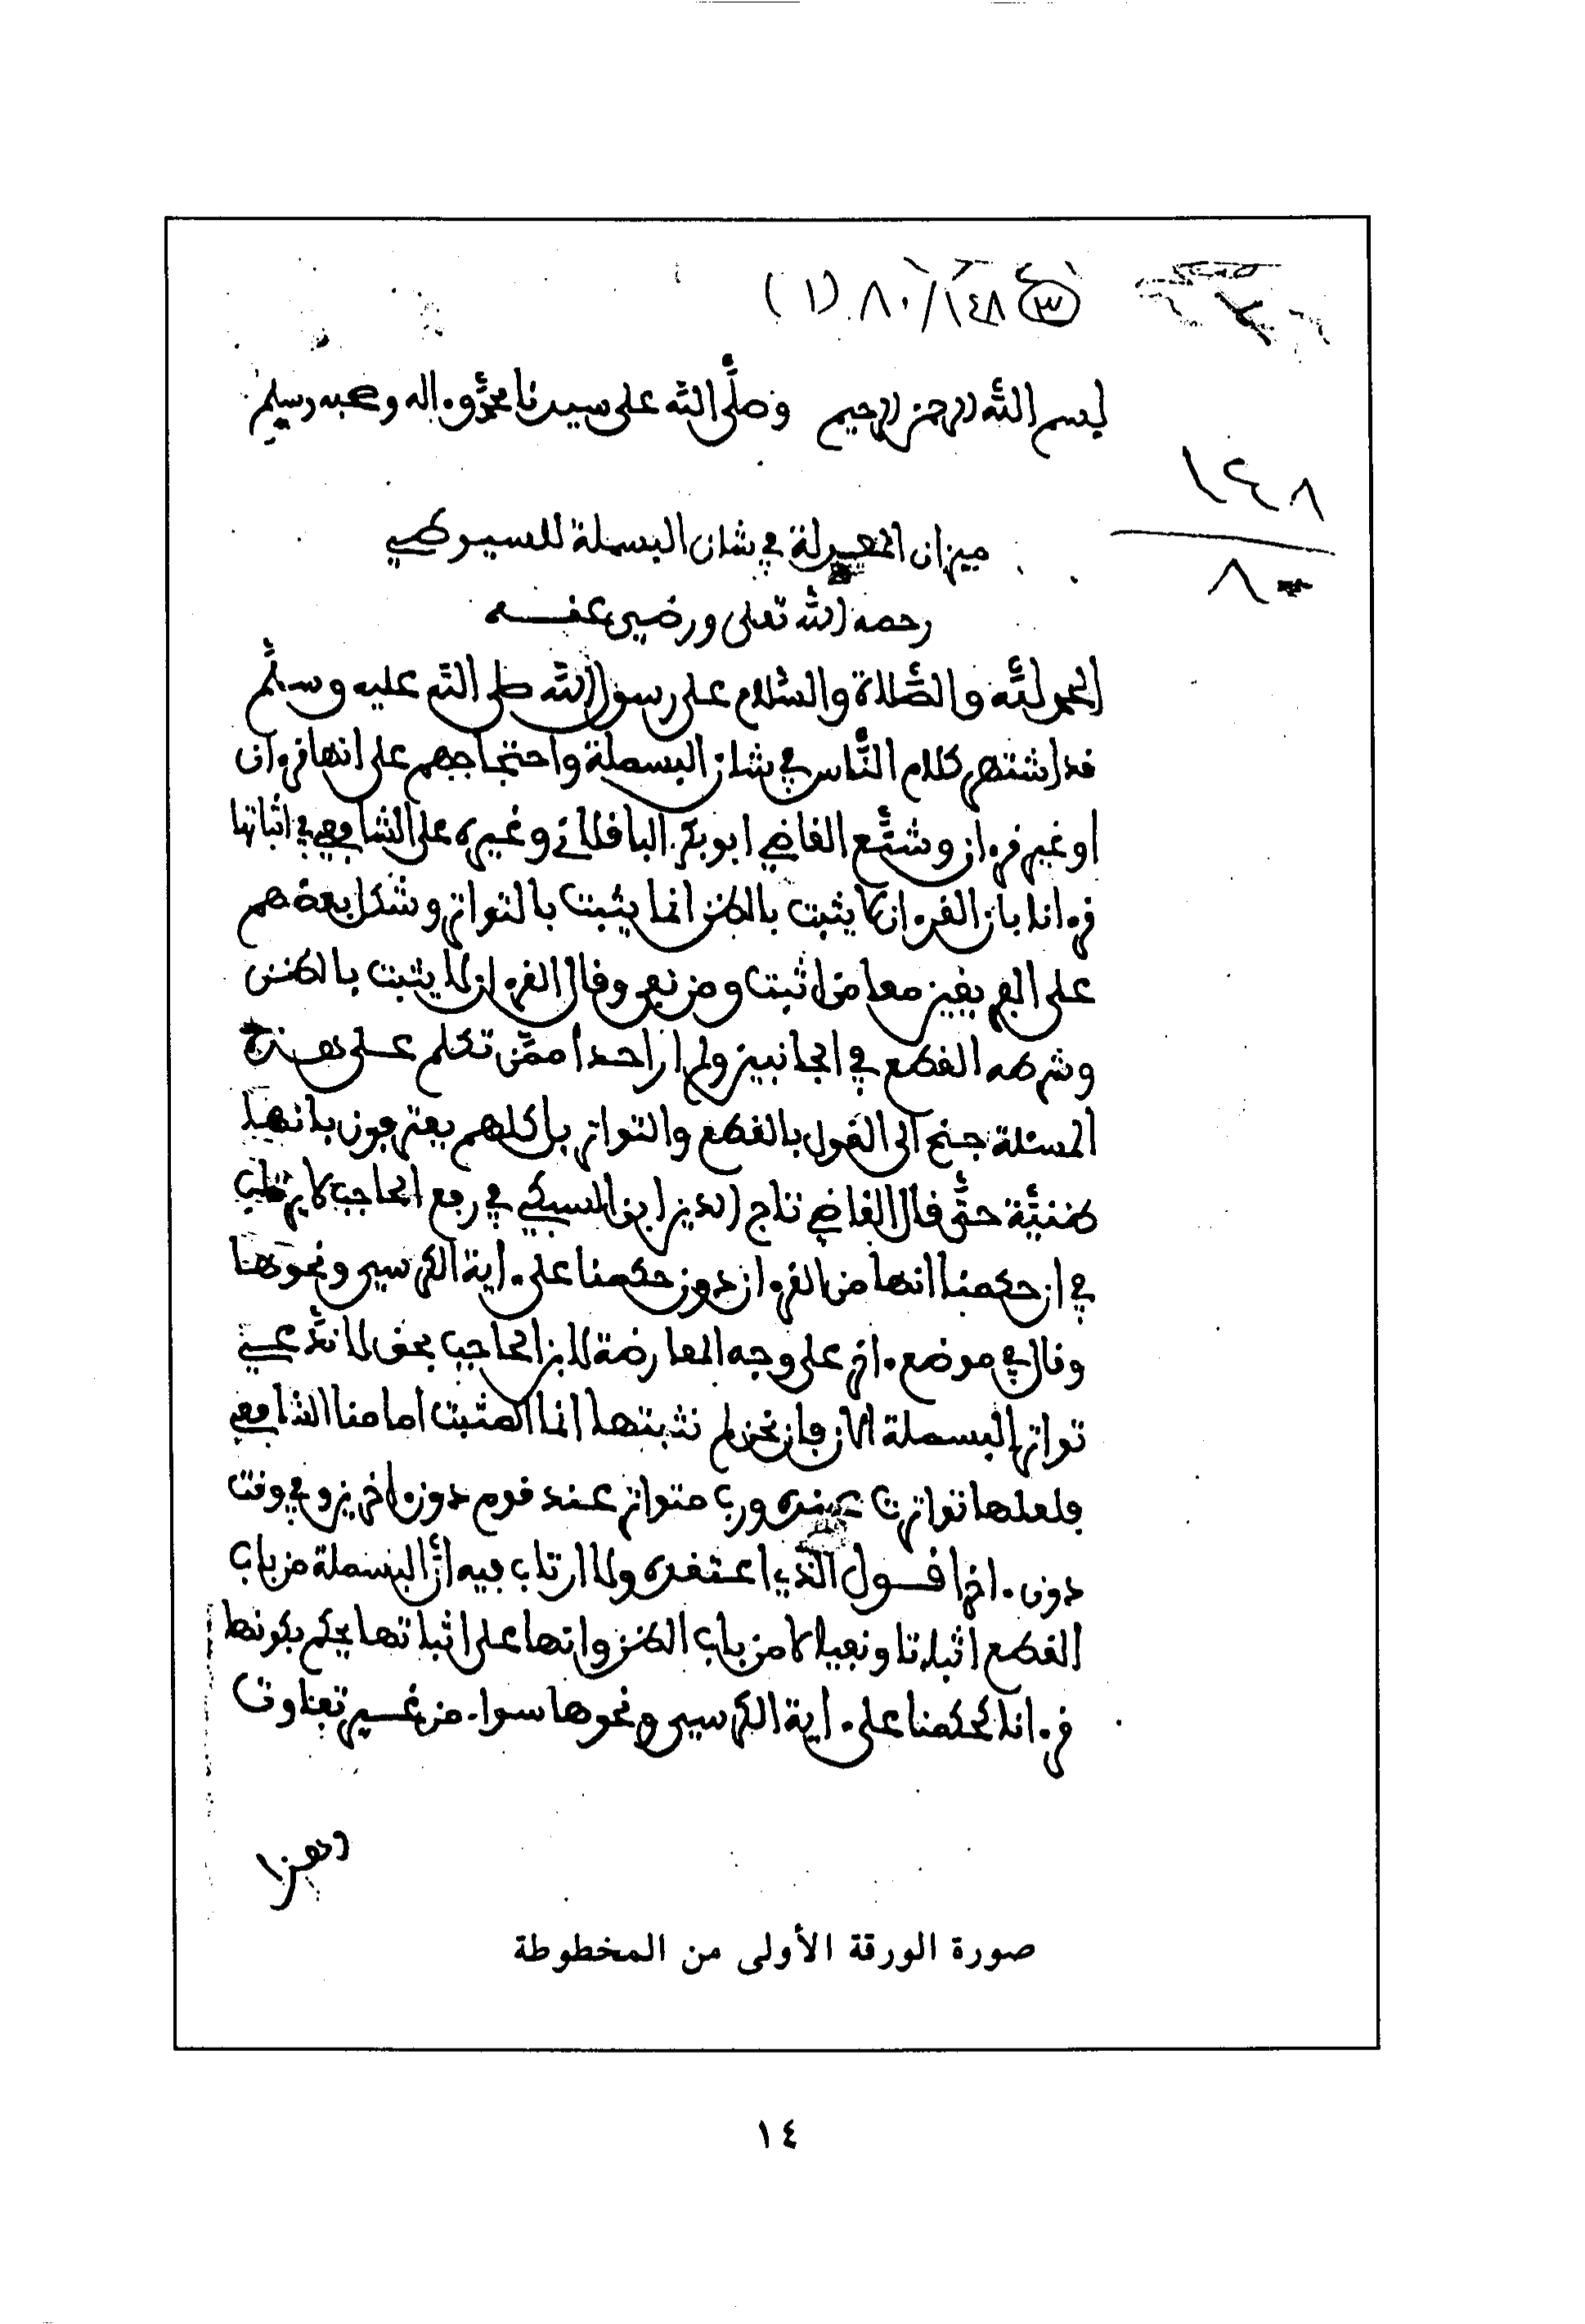 ٣ ١٤٨/٨٠ (١)
بسم الله الرحمن الرحيم وصلى الله على سيدنا محمد وءاله وصحبه وسلم
١٤٨
٨٠
ميزان المعدلة في شان البسملة للسيوطي
رحمه الله تعلى ورضي عنه
الحمد لله والصَّلاة والسَّلام على رسول الله صلى الله عليه وسلَّم
قد اشتهر كلام النَّاس في شان البسملة واحتجاجهم على انها قرءان
او غير قرءان وشنَّع القاضي ابو بكر الباقلاني وغيره على الشافعي في اثباتها
قرءانا بان القرءان لا يثبت بالظن انما يثبت بالتواتر وشكل بعضهم
على الفريقين معا من اثبت ومن نفى وقال القرءان لا يثبت بالظن
وشرطه القطع في الجانبين ولم ار احدا ممَّن تكلم على هذه
المسئلة جنح الى القول بالقطع والتواتر بل كلهم يعترفون بانها
ظنيَّة حتَّى قال القاضي تاج الدين ابن السبكي في رفع الحاجب لا يرتاب
في ان حكمنا انها من القرءان دون حكمنا على ءاية الكرسي ونحوها
وقال في موضع ءاخر على وجه المعارضة لابن الحاجب نحن لا ندَّعي
تواتر البسملة الان فان نحن لم نثبتها انما المثبت امامنا الشافعي
فلعلها تواترت عنده ورب متواتر عند قوم دون ءاخرين وفي وقت
دون ءاخر اقول الذي اعتقده ولا ارتاب فيه انَّ البسملة من باب
القطع اثباتا ونفيا لا من باب الظن وانها على اثباتها يحكم بكونها
قرءانا كحكمنا على ءاية الكرسي ونحوها سواء من غير تفاوت
وهذا
صورة الورقة الأولى من المخطوطة
١٤